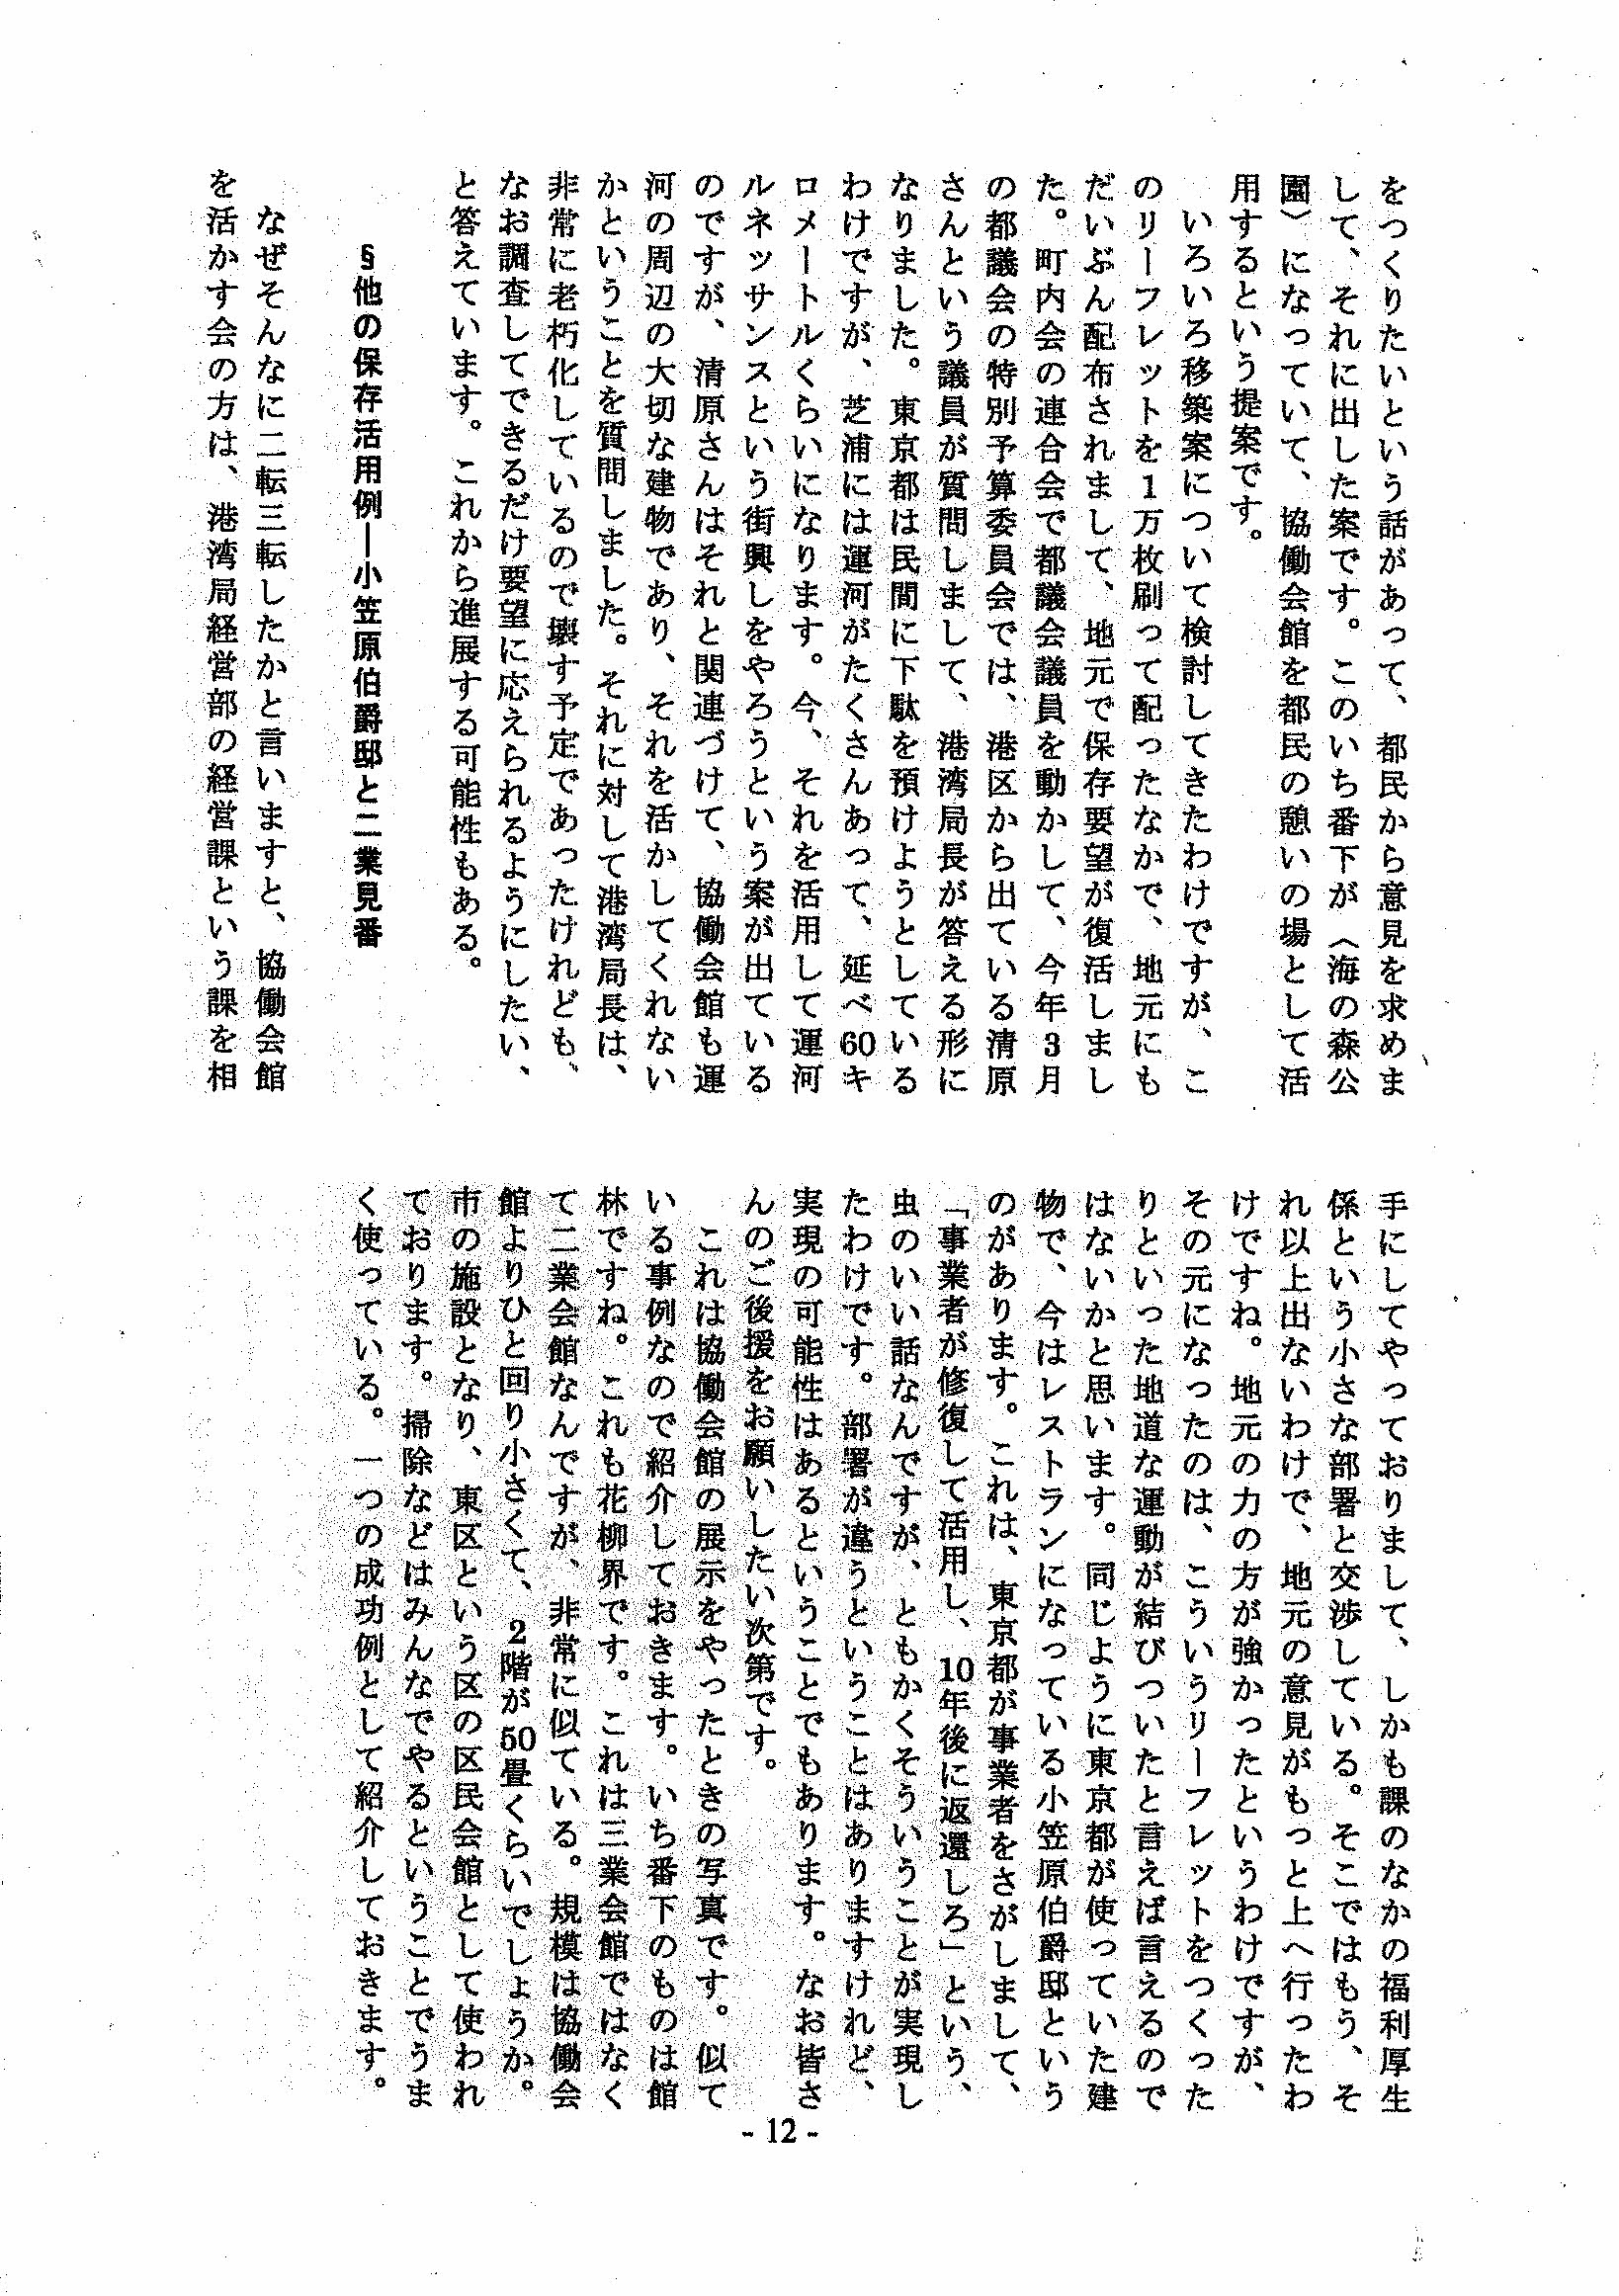 をつくりたいという話があって、都民から意見を求めま
して、それに出した案です。このいち番下が〈海の森公
園〉になっていて、協働会館を都民の憩いの場として活
用するという提案です。
いろいろ移築案について検討してきたわけですが、こ
のリーフレットを1万枚刷って配ったなかで、地元にも
だいぶん配布されまして、地元で保存要望が復活しまし
た。町内会の連合会で都議会議員を動かして、今年3月
の都議会の特別予算委員会では、港区から出ている清原
さんという議員が質問しまして、港湾局長が答える形に
なりました。東京都は民間に下駄を預けようとしている
わけですが、芝浦には運河がたくさんあって、延べ60キ
ロメートルくらいになります。今、それを活用して運河
ルネッサンスという街興しをやろうという案が出ている
のですが、清原さんはそれと関連づけて、協働会館も運
河の周辺の大切な建物であり、それを活かしてくれない
かということを質問しました。それに対して港湾局長は、
非常に老朽化しているので壊す予定であったけれども、
なお調査してできるだけ要望に応えられるようにしたい、
と答えています。これから進展する可能性もある。
§他の保存活用例―小笠原伯爵邸と二業見番
なぜそんなに二転三転したかと言いますと、協働会館
を活かす会の方は、港湾局経営部の経営課という課を相
手にしてやっておりまして、しかも課のなかの福利厚生
係という小さな部署と交渉している。そこではもう、そ
れ以上出ないわけで、地元の意見がもっと上へ行ったわ
けですね。地元の力の方が強かったというわけですが、
その元になったのは、こういうリーフレットをつくった
りといった地道な運動が結びついたと言えば言えるので
はないかと思います。同じように東京都が使っていた建
物で、今はレストランになっている小笠原伯爵邸という
のがあります。これは、東京都が事業者をさがしまして、
「事業者が修復して活用し、10年後に返還しろ」という、
虫のいい話なんですが、ともかくそういうことが実現し
たわけです。部署が違うということはありますけれど、
実現の可能性はあるということでもあります。なお皆さ
んのご後援をお願いしたい次第です。
これは協働会館の展示をやったときの写真です。似て
いる事例なので紹介しておきます。いち番下のものは館
林ですね。これも花柳界です。これは三業会館ではなく
て二業会館なんですが、非常に似ている。規模は協働会
館よりひと回り小さくて、2階が50畳くらいでしょうか。
市の施設となり、東区という区の区民会館として使われ
ております。掃除などはみんなでやるということでうま
く使っている。一つの成功例として紹介しておきます。
- 12 -